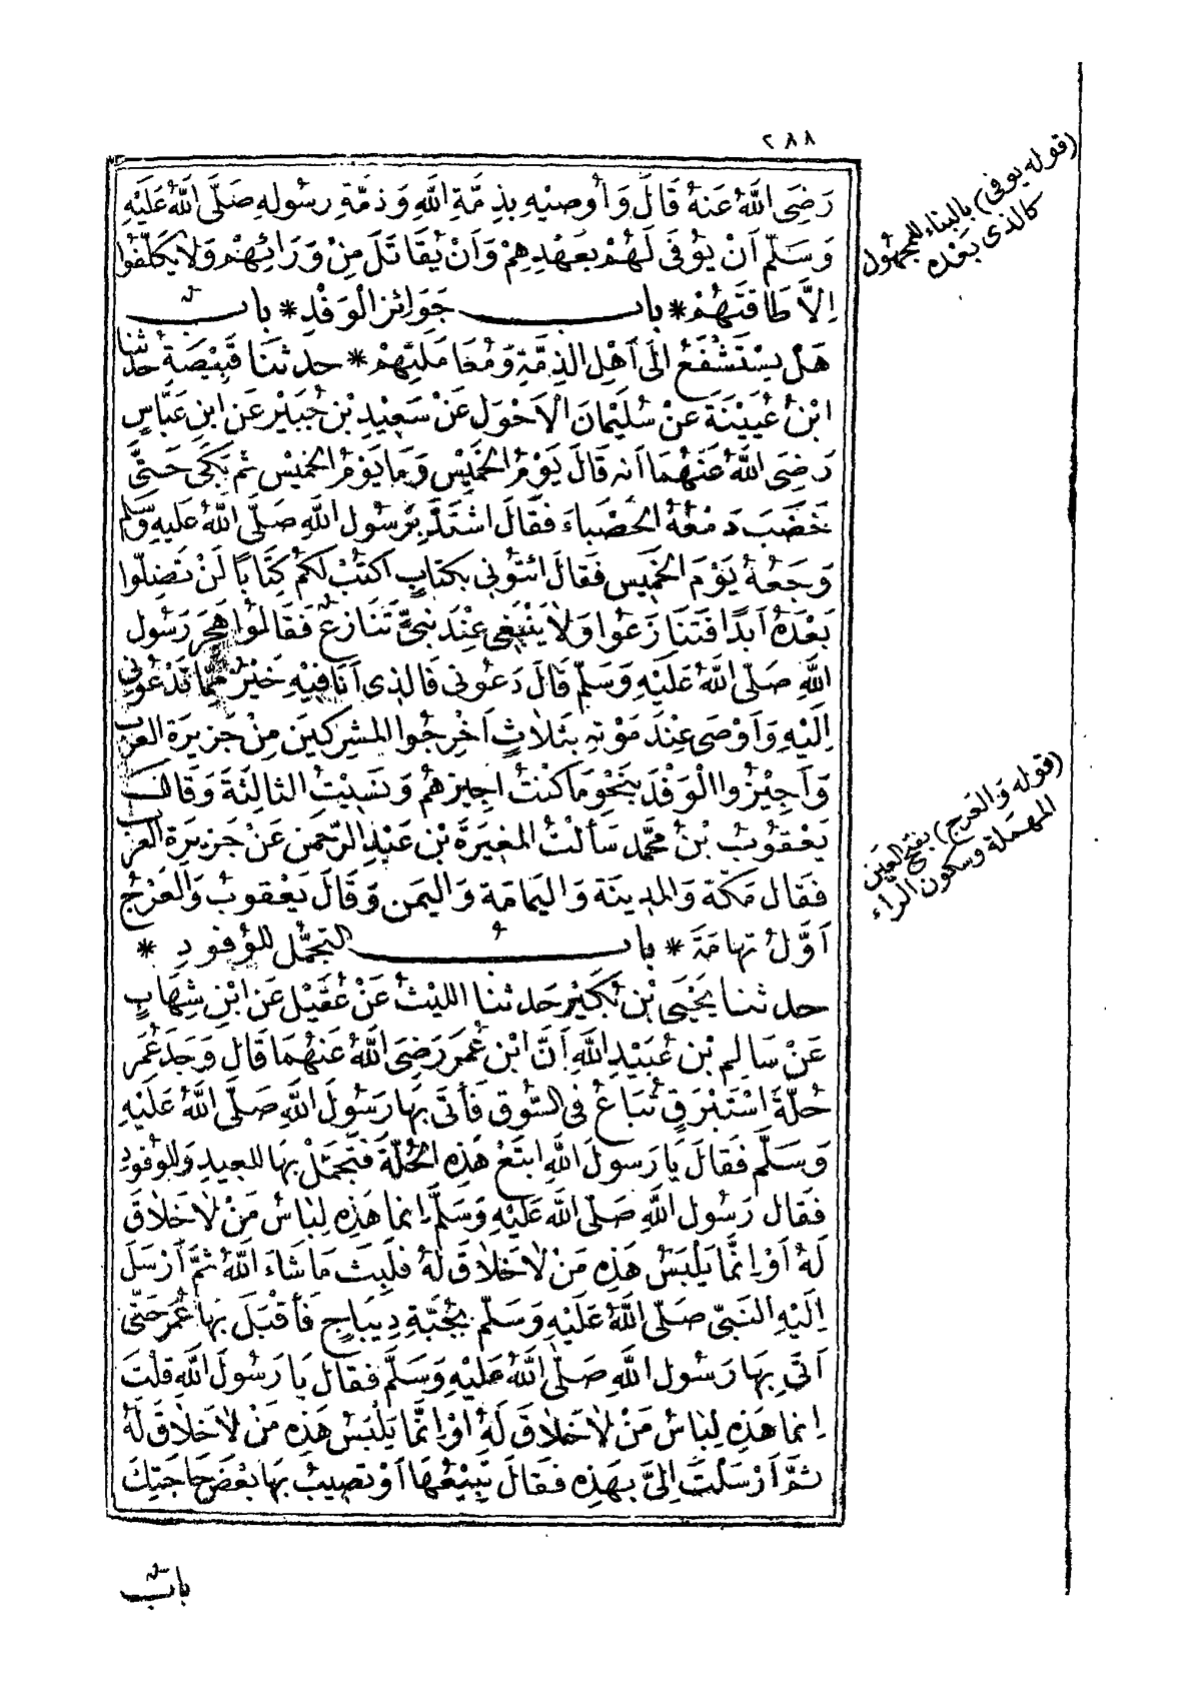 ٢٨٨
رَضِيَ اللَّهُ عَنْهُ قَالَ وَأُوصِيهِ بِذِمَّةِ اللَّهِ وَذِمَّةِ رَسُولِهِ صَلَّى اللَّهُ عَلَيْهِ
وَسَلَّمَ اَنْ يُوفَى لَهُمْ بِعَهْدِهِمْ وَاَنْ يُقَاتَلَ مِنْ وَرَائِهِمْ وَلَا يُكَلَّفُوا
اِلَّا طَاقَتَهُمْ * باب جَوَائِزِ الْوَفْدِ * باب
هَلْ يُسْتَشْفَعُ اِلَى اَهْلِ الذِمَّةِ وَمُعَامَلَتِهِمْ * حدثنا قَبِيْصَةُ حدثنا
ابْنُ عُيَيْنَةَ عَنْ سُلَيْمَانَ الْاَحْوَلِ عَنْ سَعِيْدِ بْنِ جُبَيْرٍ عَنِ ابنِ عَبَّاسٍ
رَضِيَ اللَّهُ عَنْهُمَا اَنه قَالَ يَوْمُ الخَمِيْسِ وَمَا يَوْمُ الخَمِيْسِ ثم بَكَى حَتَّى
خَضَبَ دَمْعُهُ الحَصْبَاءَ فَقَالَ اشْتَدَّ بِرَسُولِ اللَّهِ صَلَّى اللَّهُ عَلَيْهِ وَسَلَّم
وَجَعُهُ يَوْمَ الخَمِيسِ فَقَالَ ائْتُونِي بِكِتَابٍ اَكْتُبْ لَكُمْ كِتَابًا لَنْ تَضِلّوا
بَعْدَهُ اَبَدًا فَتَنَازَعُوا وَلَا يَنْبَغِي عِنْدَ نَبِيٍّ تَنَازعٌ فَقَالُوا هَجَرَ رَسُول
اللَّهِ صَلَّى اللَّهُ عَلَيْهِ وَسَلَّمَ قَالَ دَعُونِي فَالذِي اَنَا فِيْهِ خَيْرٌ مِمَّا تَدْعُونِي
اِلَيْهِ وَاَوْصَى عِنْدَ مَوْتِهِ بِثَلَاثٍ اَخْرِجُوا المشرِكِينَ مِنْ جَزِيرَةِ العَرَب
وَاَجِيْزُوا الْوَفْدَ بِنَحْوِ مَا كُنْتُ اُجِيزهُمْ وَنَسِيْتُ الثالِثَةَ وَقَالَ
يَعْقُوبُ بْنُ محَمَّد سَأَلْتُ المغِيرَةَ بْنَ عَبْدِ الرّحْمنِ عَنْ جَزِيرَةِ العَرَب
فَقَالَ مَكّةُ وَالمدِينَةُ وَاليَمَامَة وَاليَمَنُ وَقَالَ يَعْقُوبُ وَالعَرْجُ
اَوَّلُ تِهَامَةَ * باب التجَمُّلِ للْوُفودِ *
حدثنا يَحْيَى بْن بُكَيْرٍ حَدثنا الليْثُ عَنْ عُقَيْلٍ عَنِ ابْنِ شِهَابٍ
عَنْ سَالِمِ بْنِ عُبَيْدِ اللَّهِ اَنَّ ابْنَ عُمَرَ رَضِيَ اللَّهُ عَنْهُمَا قَالَ وَجَدَ عُمَر
حُلّةَ اسْتَبْرَقٍ تُبَاعُ فِي السُّوقِ فَأَتَى بِهَا رَسُولَ اللَّهِ صَلَّى اللَّهُ عَلَيْهِ
وَسَلَّمَ فَقَالَ يَا رَسولَ اللَّهِ ابْتَعْ هَذِهِ الحُلّةَ فَتَجَمّلْ بِهَا للعِيدِ وَللوُفودِ
فَقَالَ رَسُول اللَّهِ صَلَّى اللَّهُ عَلَيْهِ وَسَلَّمَ اِنما هَذِهِ لِبَاسُ مَنْ لَا خَلَاقَ
لَهُ اَوْ اِنَّمَا يَلْبَسُ هَذِهِ مَنْ لَا خَلَاقَ لَهُ فَلَبِثَ مَا شَاءَ اللَّهُ ثُمَّ اَرْسَلَ
اِلَيْهِ النَّبِيُّ صَلَّى اللَّهُ عَلَيْهِ وَسَلَّمَ بِجُبَّةِ دِيبَاجٍ فَأَقْبَلَ بِهَا عُمَرُ حَتَّى
اَتَى بِهَا رَسُول اللَّهِ صَلَّى اللَّهُ عَلَيْهِ وَسَلَّم فَقَال يَا رَسُولَ اللَّهِ قُلْتَ
اِنما هَذِهِ لِبَاسُ مَنْ لَا خَلَاقَ لَهُ اَوْ اِنَّمَا يَلْبَسُ هَذِهِ مَنْ لَا خَلَاقَ لَهُ
ثُمَّ اَرْسَلْتَ اِلَيَّ بِهَذِهِ فَقَالَ تَبِيْعُهَا اَوْ تصِيبُ بِهَا بَعْضَ حَاجَتِكَ
باب
(قوله يوفى) بالبناء للمجهول
كالذى بعْده
(قوله وَالعَرج) بفتح العَين
المهمَلة وسكون الراء